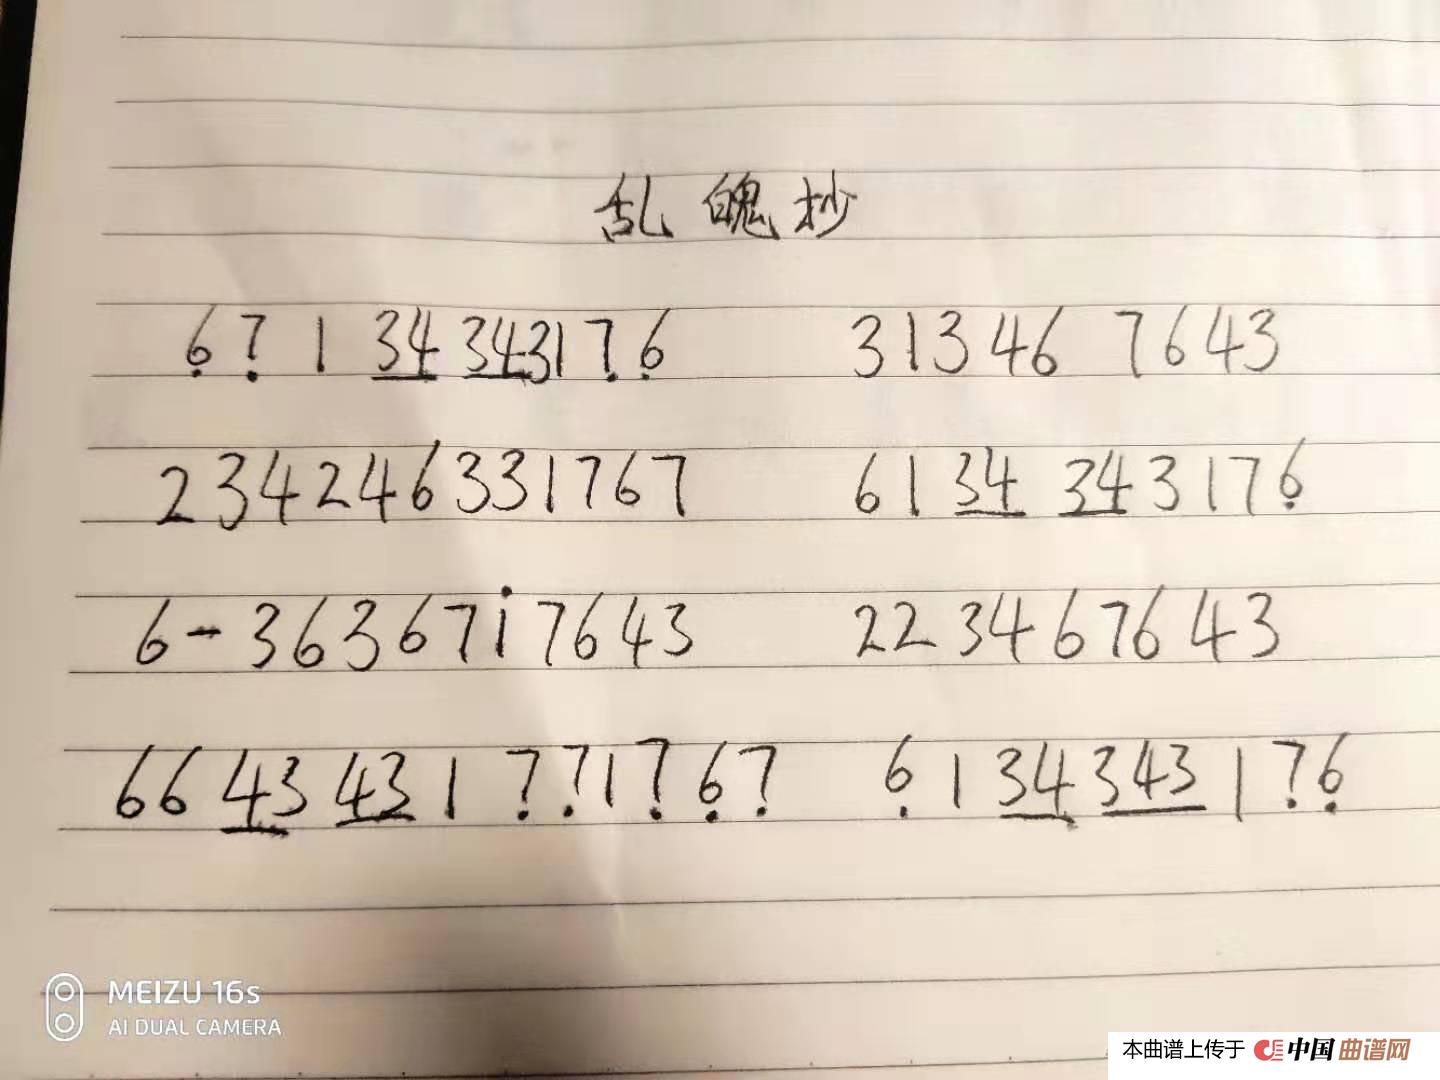 乱魄抄
6̣ 7̣ 1 34 343 1 7̣ 6̣ 31346 7643
234246331767 61 34 34 3176̣
6-363671̇7643 22 3467643
66 43 43 1 7̣7̣17̣6̣7̣ 6̣ 1 34 343 1 7̣6̣
MEIZU 16s
AI DUAL CAMERA
本曲谱上传于 中国曲谱网